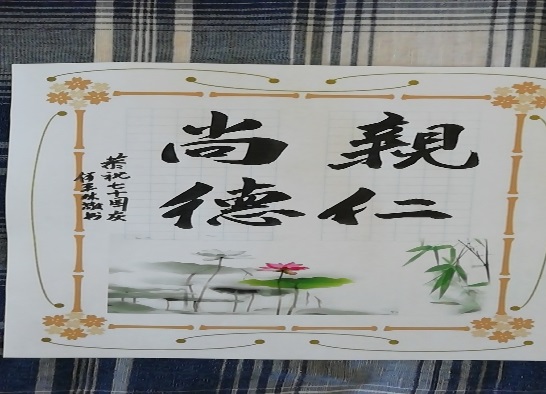 親仁
尚德
恭祝七十周友